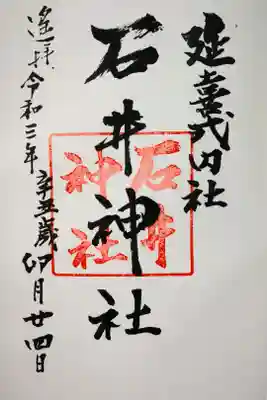 延喜式内社
石井神社
石井
神社
遥拝 令和三年 辛丑歳 卯月廿四日